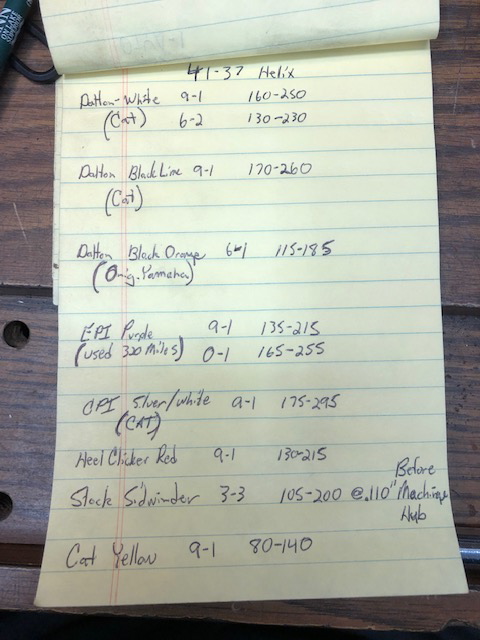 41-37 Helix
Dalton-White 9-1 160-250
(Cat) 6-2 130-230
Dalton Black Line 9-1 170-260
(Cat)
Dalton Black Orange 6-1 115-185
(Orig. Yamaha)
EPI Purple 9-1 135-215
(used 320 Miles) 0-1 165-255
EPI Silver/white 9-1 175-295
(CAT)
Heel Clicker Red 9-1 130-215
Stock Sidwinder 3-3 105-200 @.110" Before Machining Hub
Cat Yellow 9-1 80-140